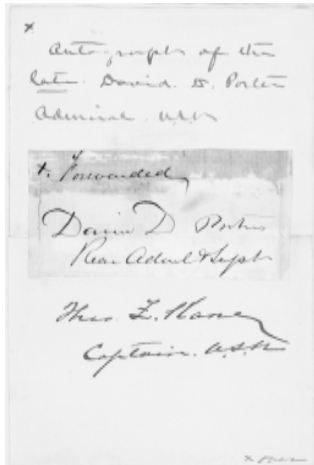 x
Autographs of the
late David. D. Porter
Admiral. U.S.N
x Forwarded,
David D Porter
Rear Adml & Supt
Theo. F. Kane
Captain. U.S.N